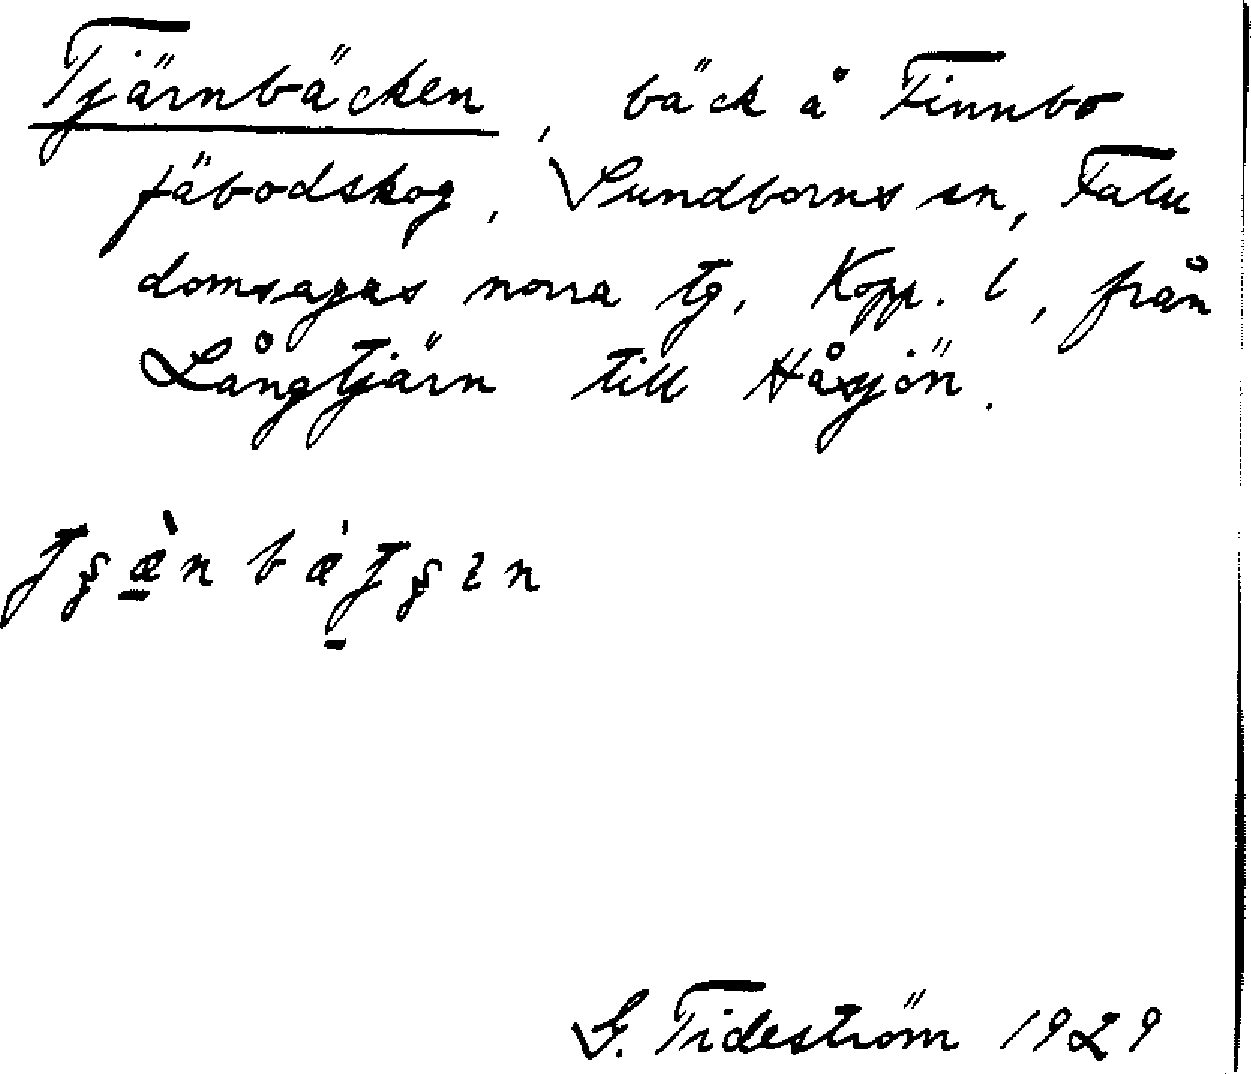 Tjärnbäcken, bäck å Finnbo
fäbodskog, Sundborns sn, Falu
domsagas norra tg, Kopp. l, från
Långtjärn till Håsjön.
G. Tideström 1929